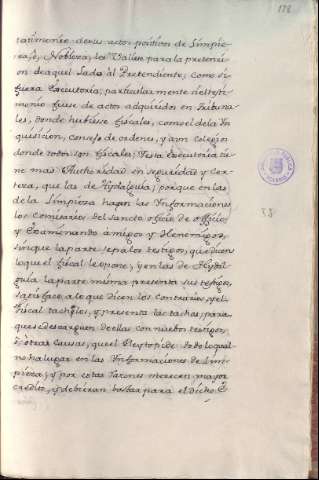 178
testimonio de sus actos positivos de Limpie-
za, ò Nobleza, les Valiese para la pretencion
de aquel Lado al Pretendiente, como si
fuera Executoria; particularmente si el testi-
monio fuese de actos adquiridos en Tribuna-
les, donde hubiese fiscales, como el de la In-
quisicion, consejo de ordenes, y aun colegios
donde todos son fiscales; Y esta Executoria tie-
ne mas Authoridad en seguridad y Cer-
teza, que las de Hydalguia; porque en las
de la Limpieza hazen las Informaciones
los comisarios del sancto oficio de officio,
y Examinando amigos, y Henemigos,
sin que la parte sepa los testigos, que dicen
lo que el fiscal le opone, y en las de Hydal-
guia la parte misma presenta sus testigos,
satisface a lo que dicen los contrarios, y el
fiscal tachalos, y presenta las tachas, para
que se descarguen de ellas con nuebos testigos,
y otras causas, que el Pleyto pide: todo lo qual
no ha lugar en las Informaciones de Lim-
pieza; y por estas razones merecen mayor
credito, y debieran bastar para el dicho E
58